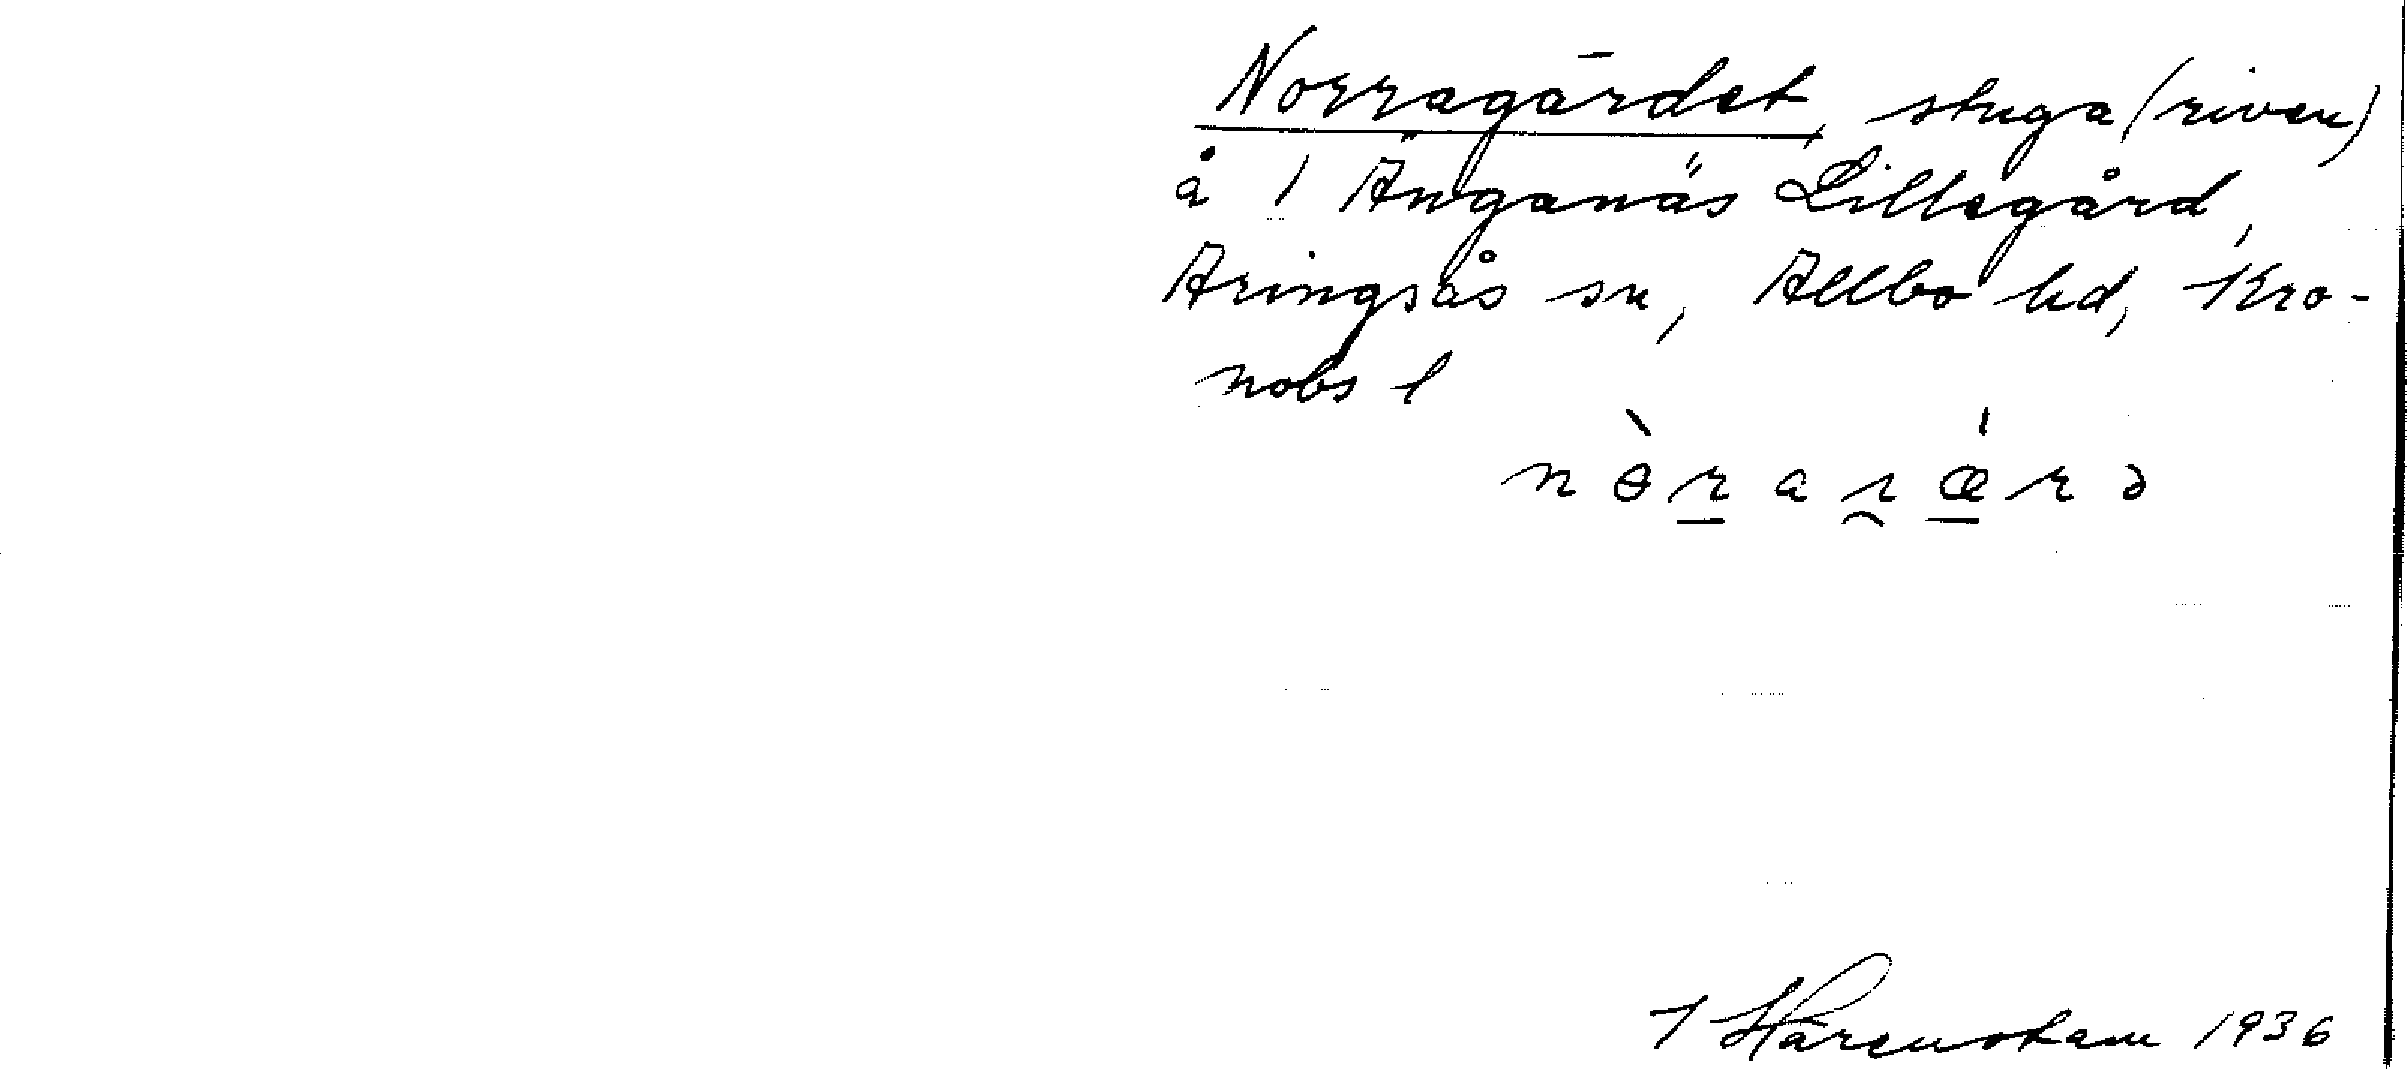 Norragärdet, stuga (riven)
å 1 Änganäs Lillegård,
Aringsås sn, Allbo hd, Kro-
nobs l
n ɵ̀ r a ɿ ǽ r ə
I Härenstam 1936